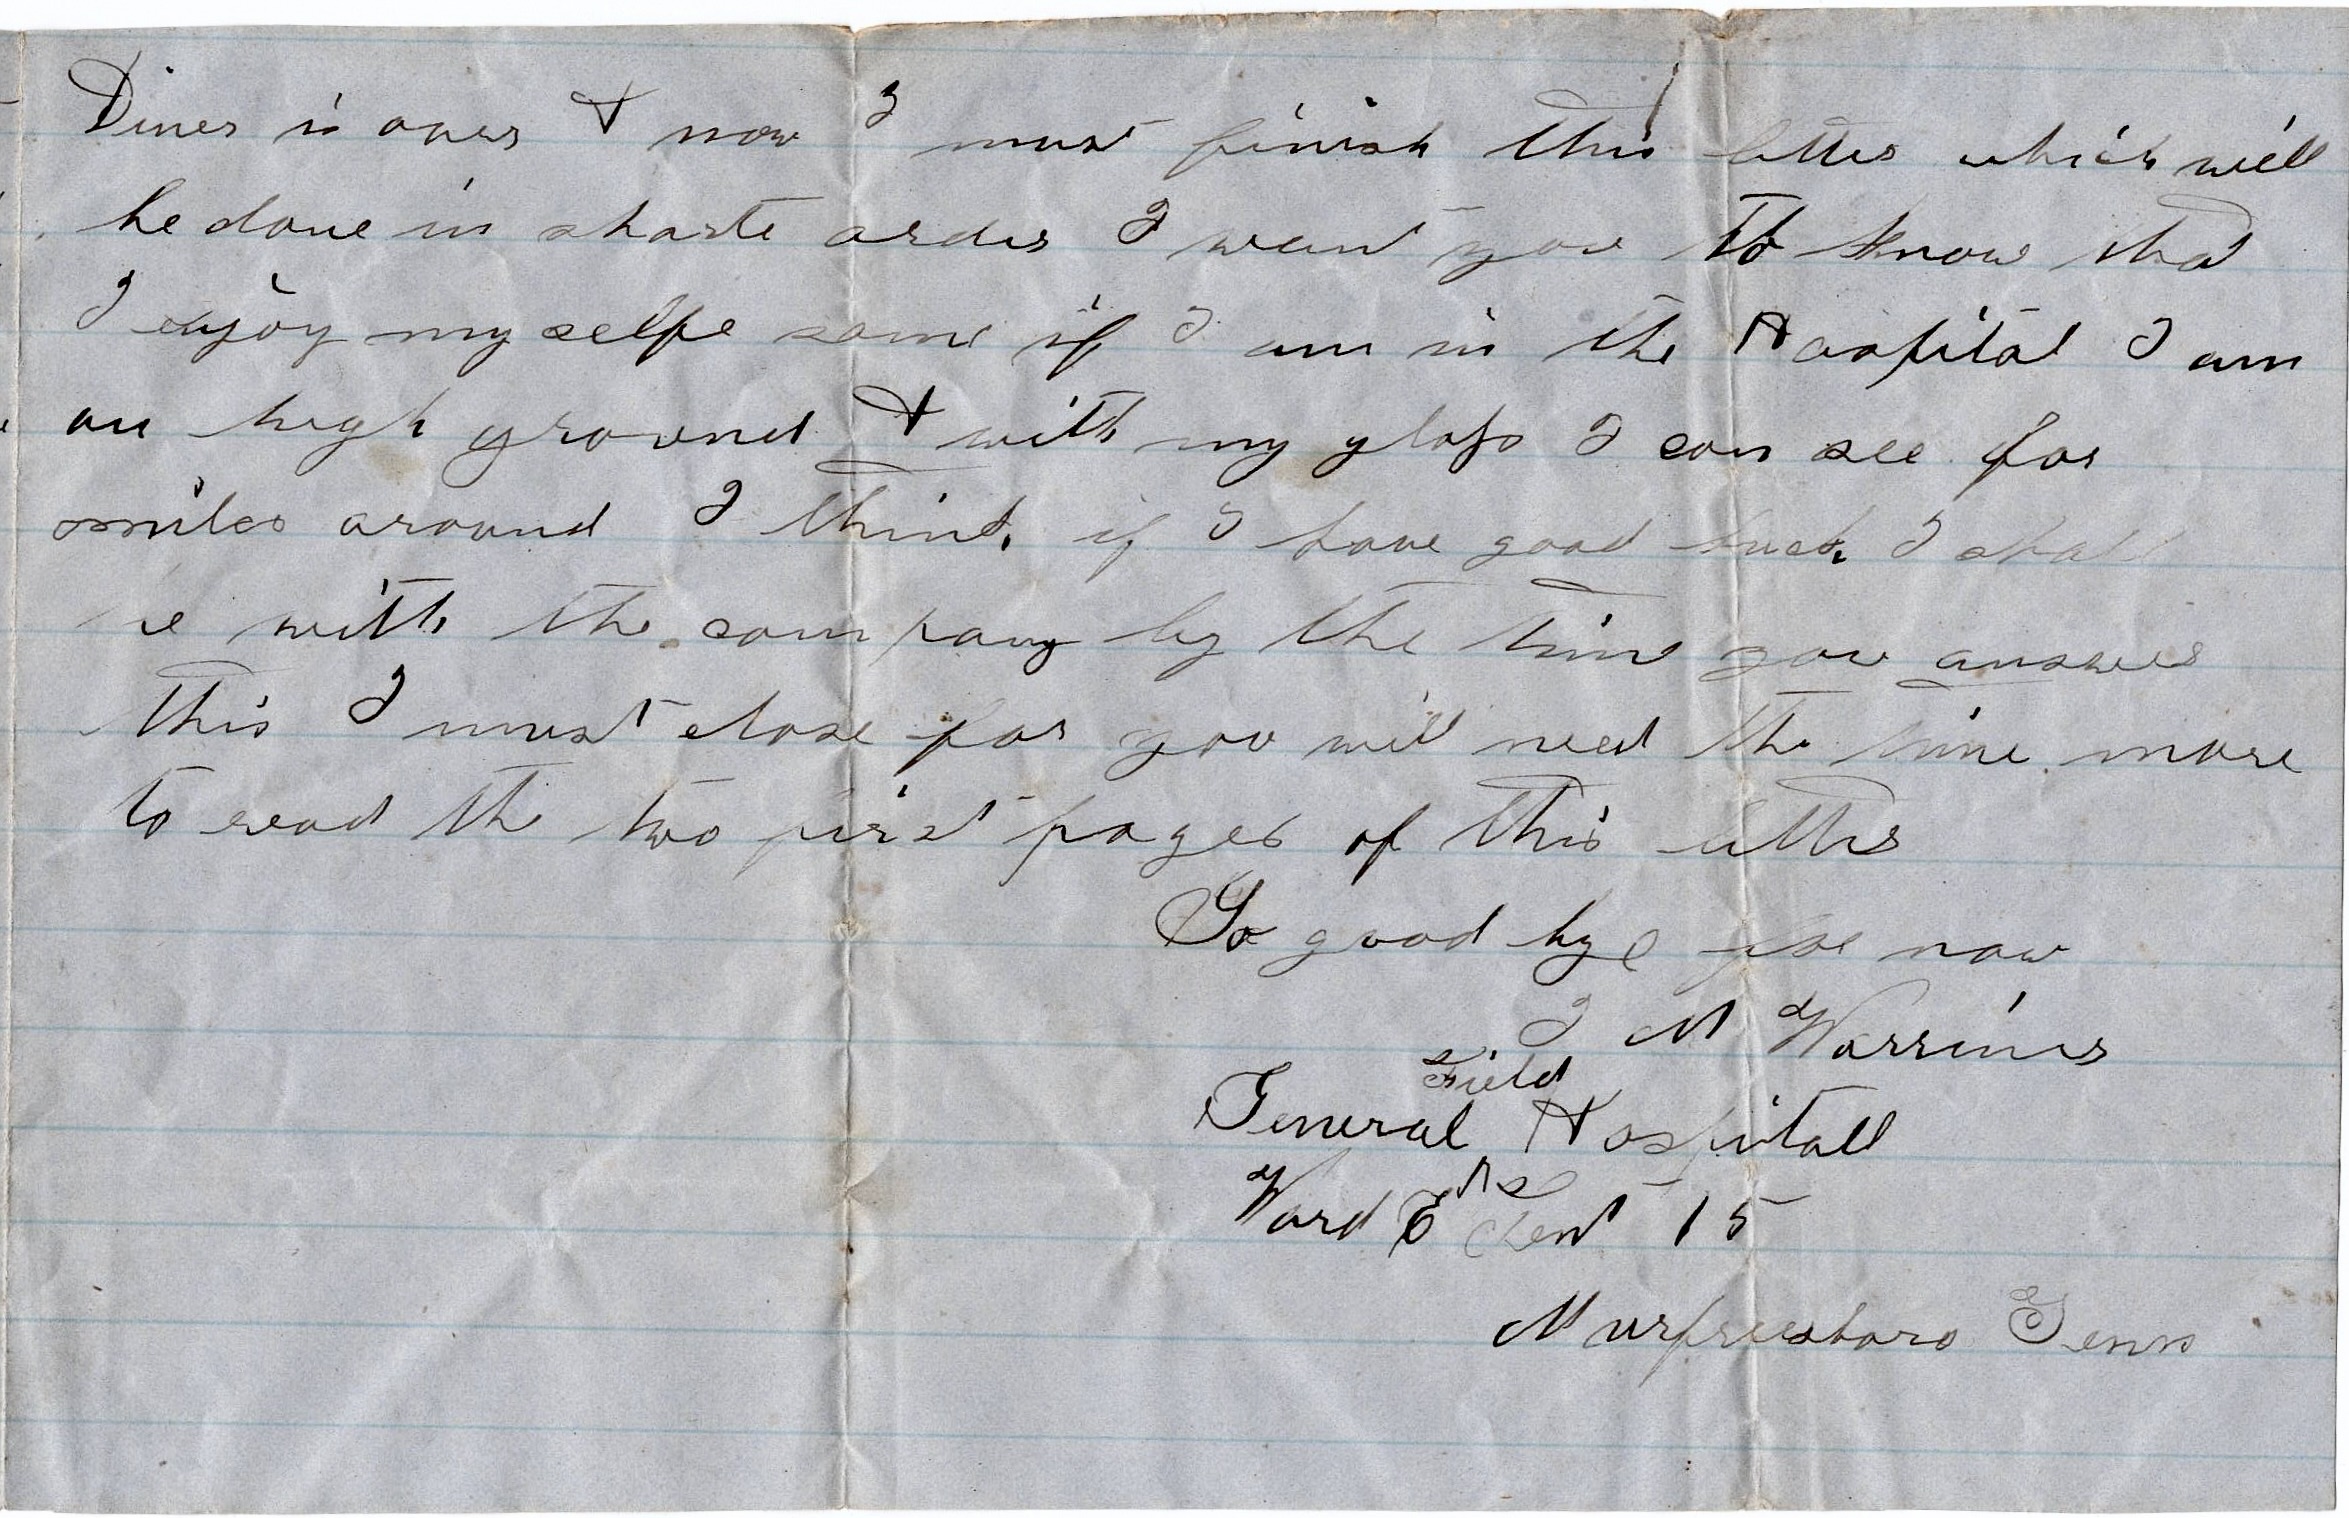 Diner is over & now I must finish this letter which will
be done in shorte order I want you to know that
I enjoy my selfe some if I am in the Hospital I am
on high ground & with my glass I can see for
miles around I think if I have good luck I shall
be with the company by the time you answer
this I must close for you will need the time more
to read the two first pages of this letter
So good bye for now
J M Warriner
Field
General Hospitall
Ward E Tent No 15
Murfreesboro Tenn